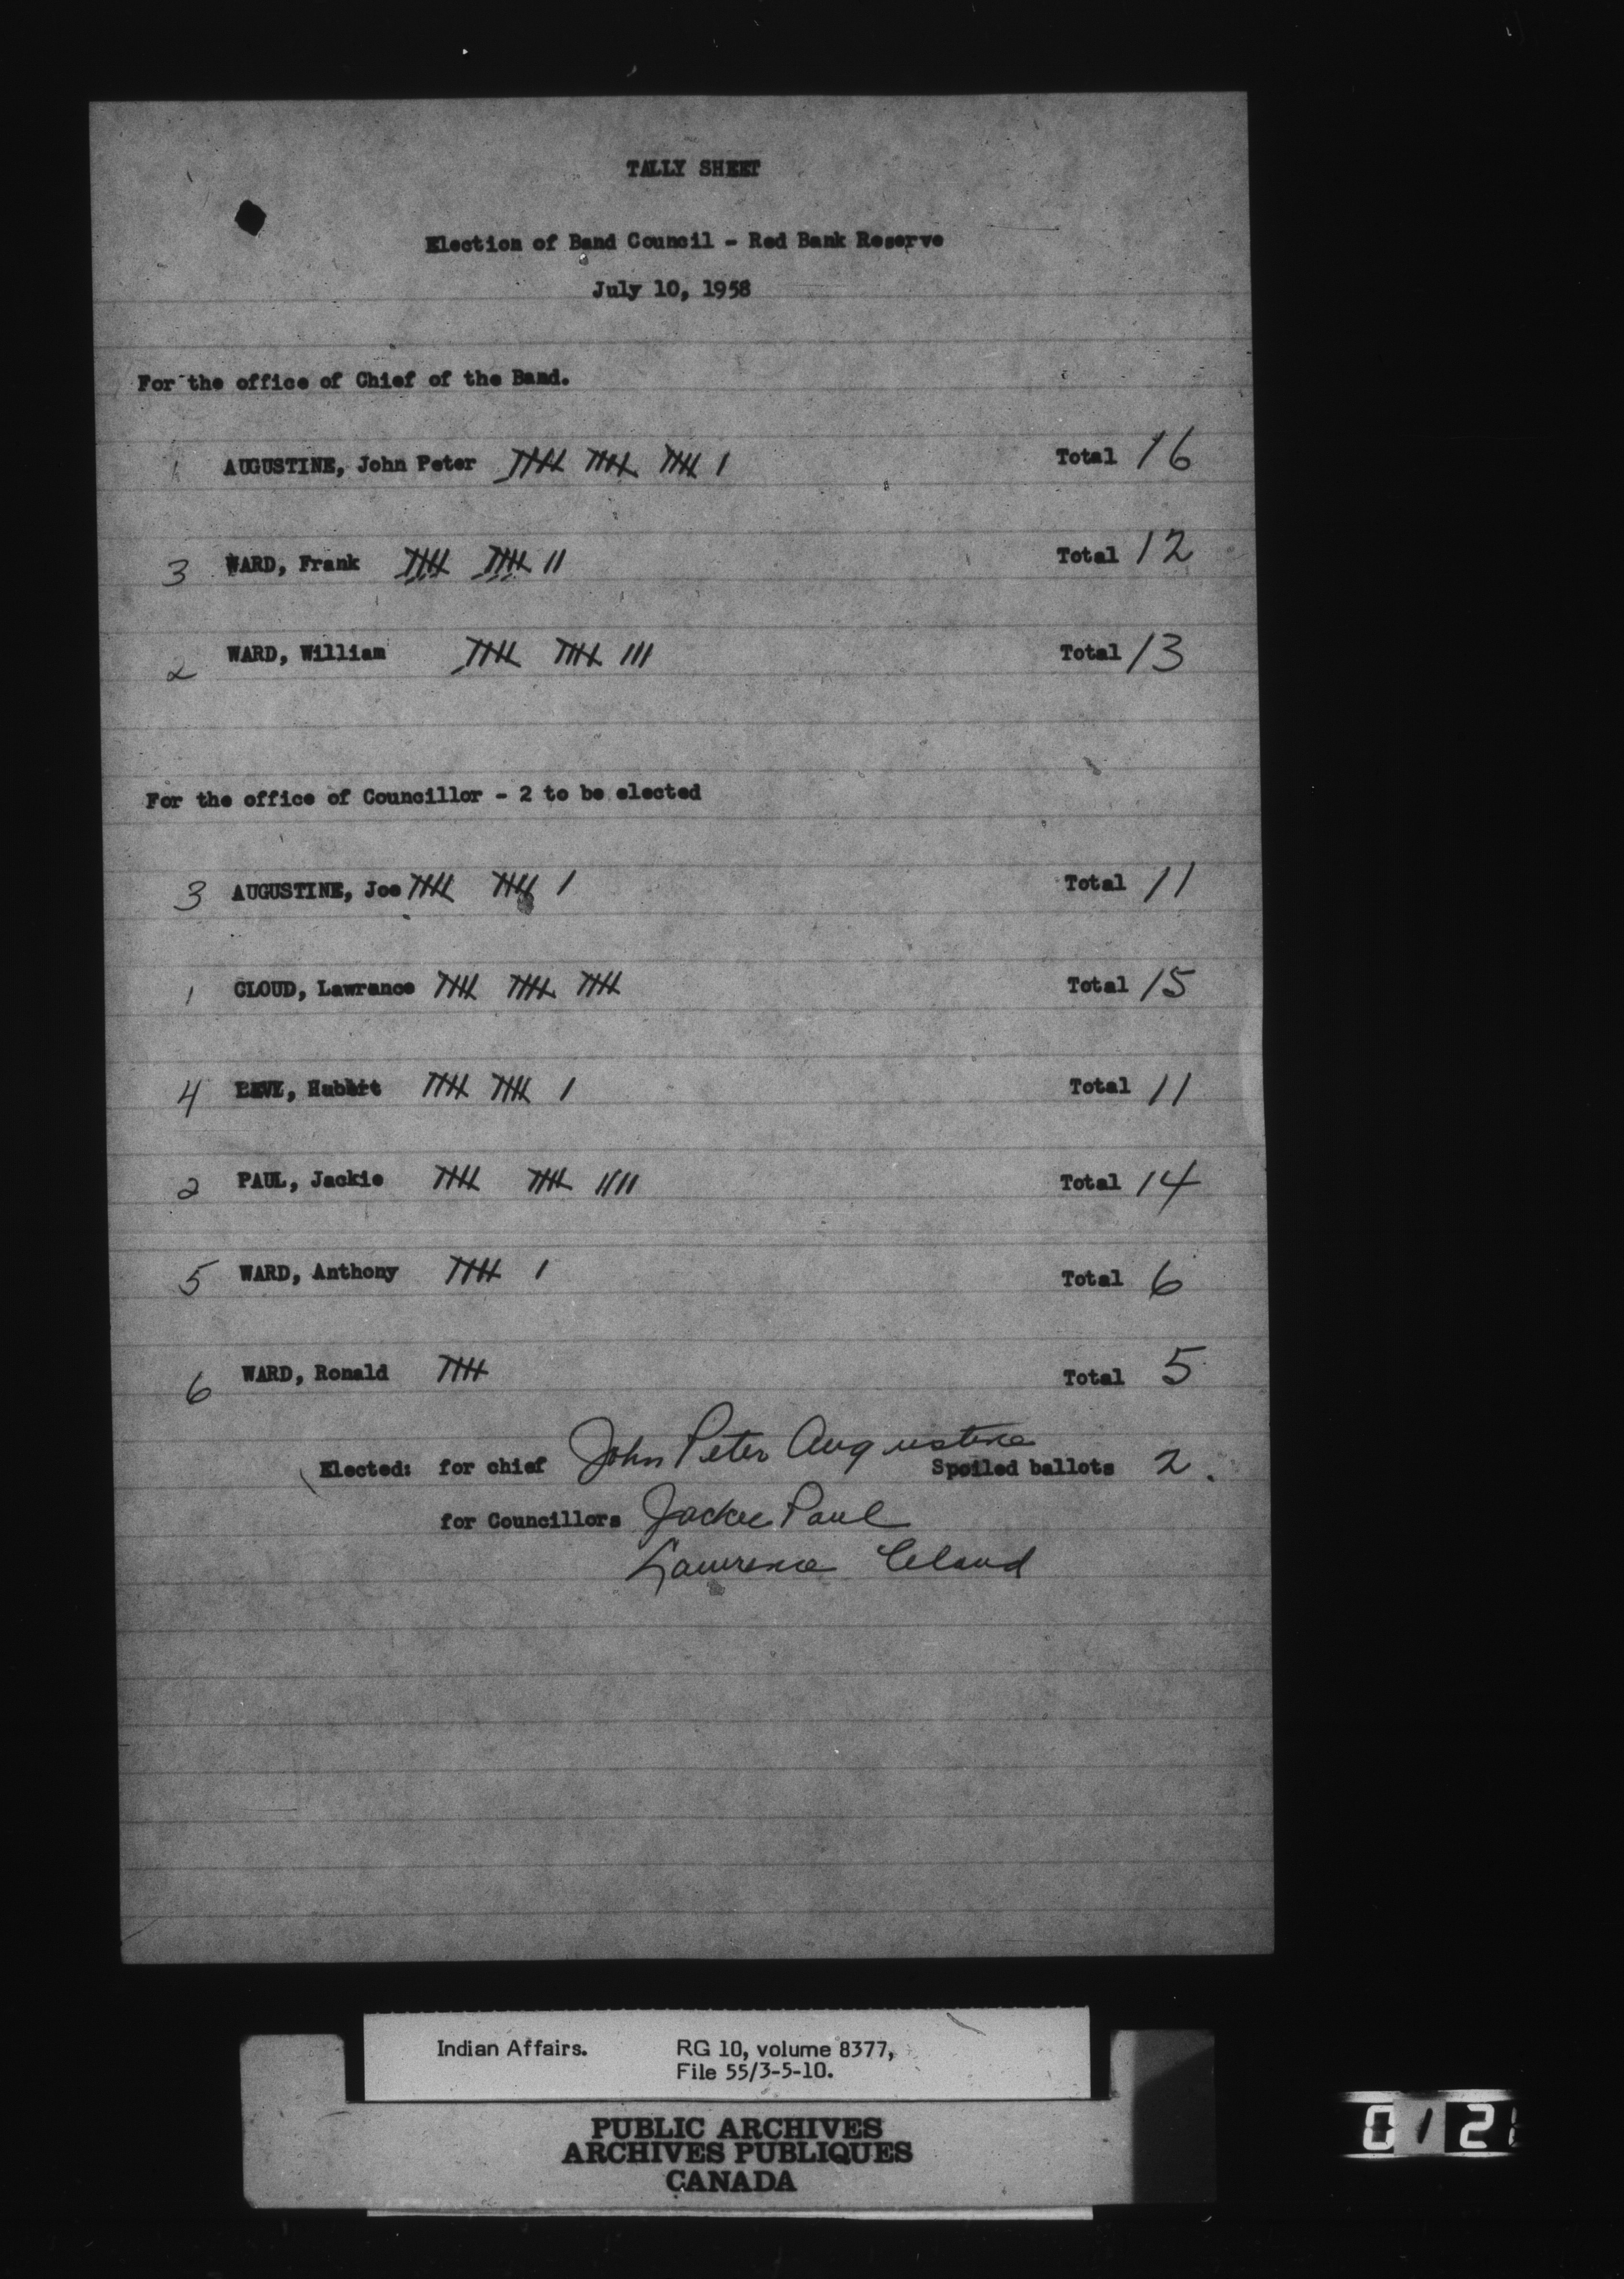 TALLY SHEET
Election of Band Council - Red Bank Reserve
July 10, 1958
For the office of Chief of the Band.
1 AUGUSTINE, John Peter Total 16
3 WARD, Frank Total 12
2 WARD, William Total 13
For the office of Councillor - 2 to be elected
3 AUGUSTINE, Joe Total 11
1 CLOUD, Lawrance Total 15
4 LEVI, Hubert Total 11
2 PAUL, Jackie Total 14
5 WARD, Anthony Total 6
6 WARD, Ronald Total 5
Elected: for chief John Peter Augustine Spoiled ballots 2.
for Councillors Jackie Paul
Lawrence Cloud
Indian Affairs. RG 10, volume 8377,
File 55/3-5-10.
PUBLIC ARCHIVES
ARCHIVES PUBLIQUES
CANADA
0 1 2